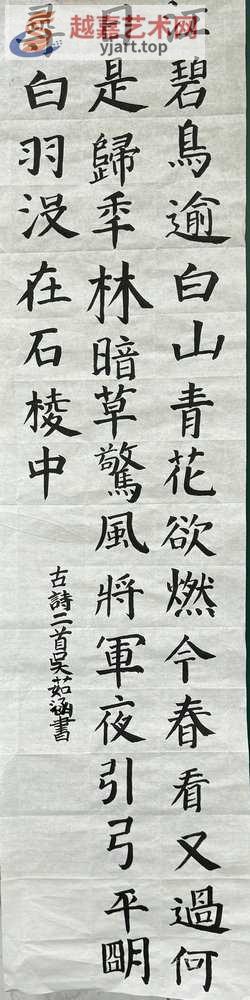 越嘉艺术网
yjart.top
江碧鳥逾白山青花欲燃今春看又過何
日是歸季林暗草驚風將軍夜引弓平朙
尋白羽没在石棱中
古詩二首吴茹涵書